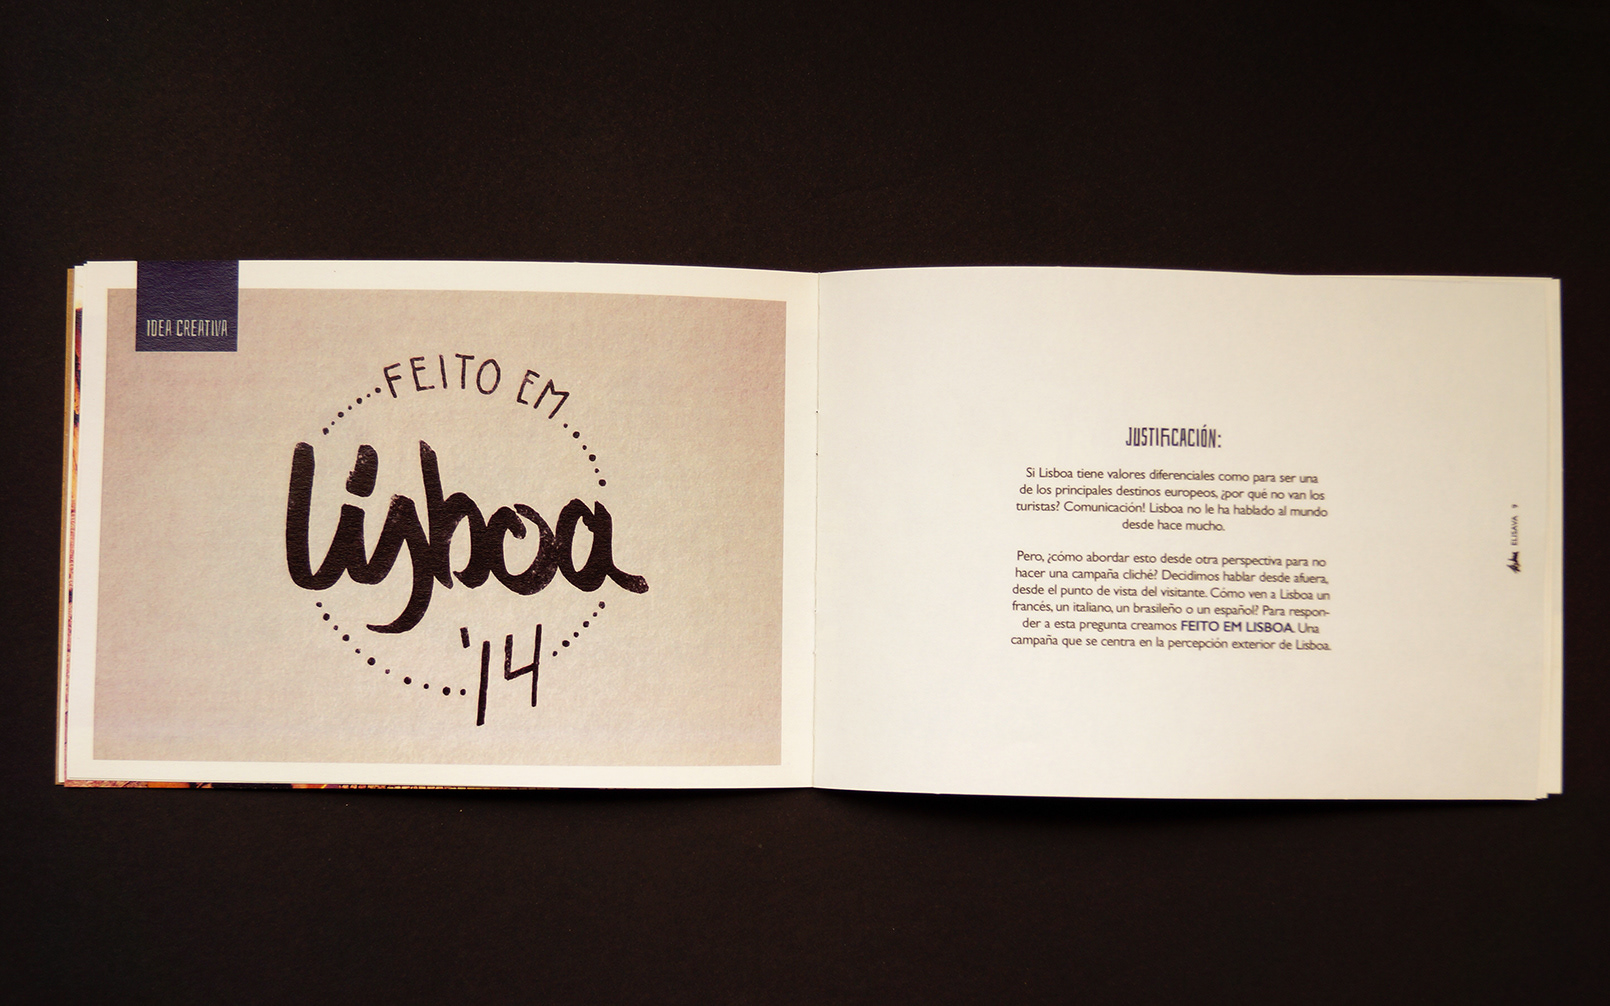 IDEA CREATIVA
FEITO EM
Lisboa
'14
JUSTIFICACIÓN:
Si Lisboa tiene valores diferenciales como para ser una
de los principales destinos europeos, ¿por qué no van los
turistas? Comunicación! Lisboa no le ha hablado al mundo
desde hace mucho.
Pero, ¿cómo abordar esto desde otra perspectiva para no
hacer una campaña cliché? Decidimos hablar desde afuera,
desde el punto de vista del visitante. Cómo ven a Lisboa un
francés, un italiano, un brasileño o un español? Para respon-
der a esta pregunta creamos FEITO EM LISBOA. Una
campaña que se centra en la percepción exterior de Lisboa.
Lisboa ELISAVA 9